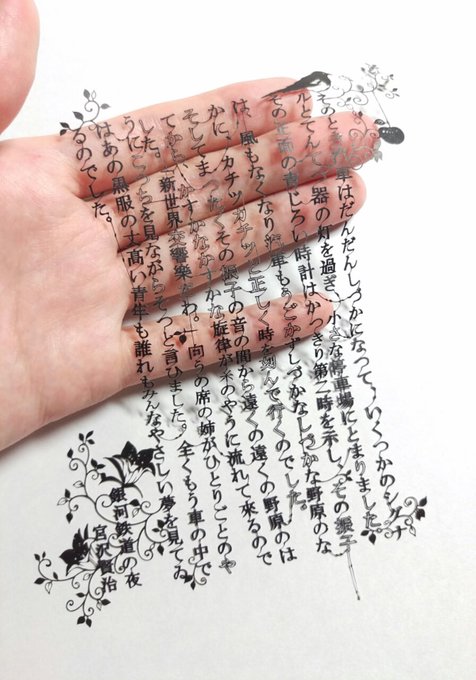 そのとき汽車はだんだんしづかになって、いくつかのシグナ
ルとてんてつ器の灯を過ぎ、小さな停車場にとまりました。
その正面の青じろい時計はかっきり第二時を示し、その振子
は、風もなくなり汽車もうごかずしづかなしづかな野原のな
かに、カチッカチッと正しく時を刻んで行くのでした。
そしてまったくその振子の音の間から遠くの遠くの野原のは
てから、かすかなかすかな旋律が糸のやうに流れて来るので
した。「新世界交響楽だわ。」向うの席の姉がひとりごとのや
うにこっちを見ながらそっと言ひました。全くもう車の中で
はあの黒服の丈高い青年も誰れもみんなやさしい夢を見てゐ
るのでした。
銀河鉄道の夜
宮沢賢治